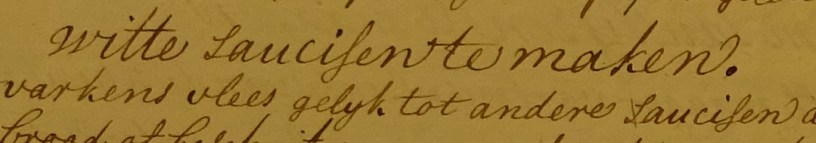 witte Saucisen te maken.
varkens vlees gelyk tot andere Saucisen